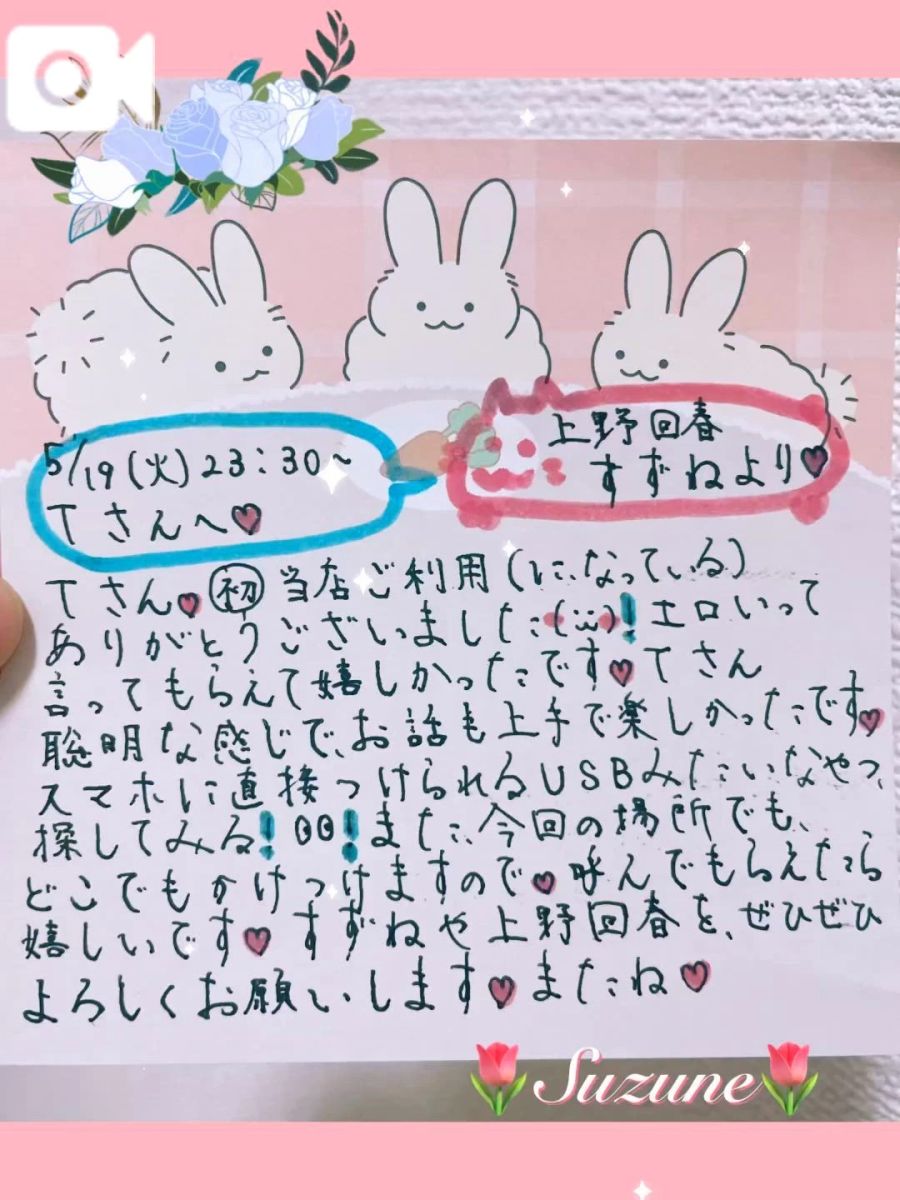 5/19(火)23:30~
Tさんへ♥
上野回春
すずねより♥
Tさん♥㊞初 当店ご利用(になっている)
ありがとうございました(¨)!エロいって
言ってもらえて嬉しかったです♥Tさん
聡明な感じで、お話も上手で楽しかったです♥
スマホに直接つけられるUSBみたいなやつ、
探してみる!👀!また、今回の場所でも、
どこでもかけつけますので♥呼んでもらえたら
嬉しいです♥すずねや上野回春を、ぜひぜひ
よろしくお願いします♥またね♥
Suzune